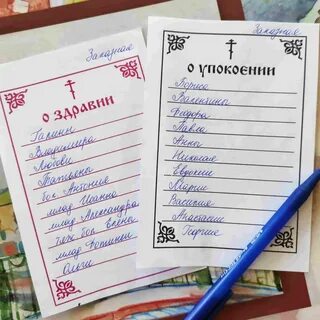 Заказная
О ЗДРАВИИ
Галины
Владимира
Любови
Татьяны
бол. Антония
млад. Иоанна
млад. Александра
бол. Елены
млад.
Ольги
Заказная
О УПОКОЕНИИ
Бориса
Валентины
Федора
Павла
Анны
Николая
Евдокии
Марии
Василия
Анастасии